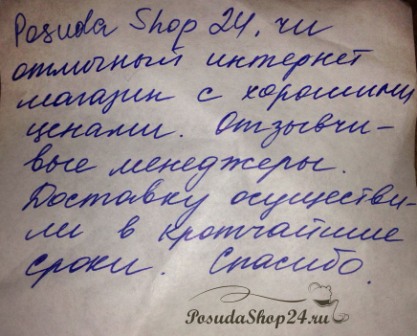 Posuda Shop 24, чи
отличный интернет
магазин с хорошими
ценами. Отзывчи-
вые менеджеры.
Доставку осуществи-
ли в кротчайшие
сроки. Спасибо.
PosudaShop24.ru